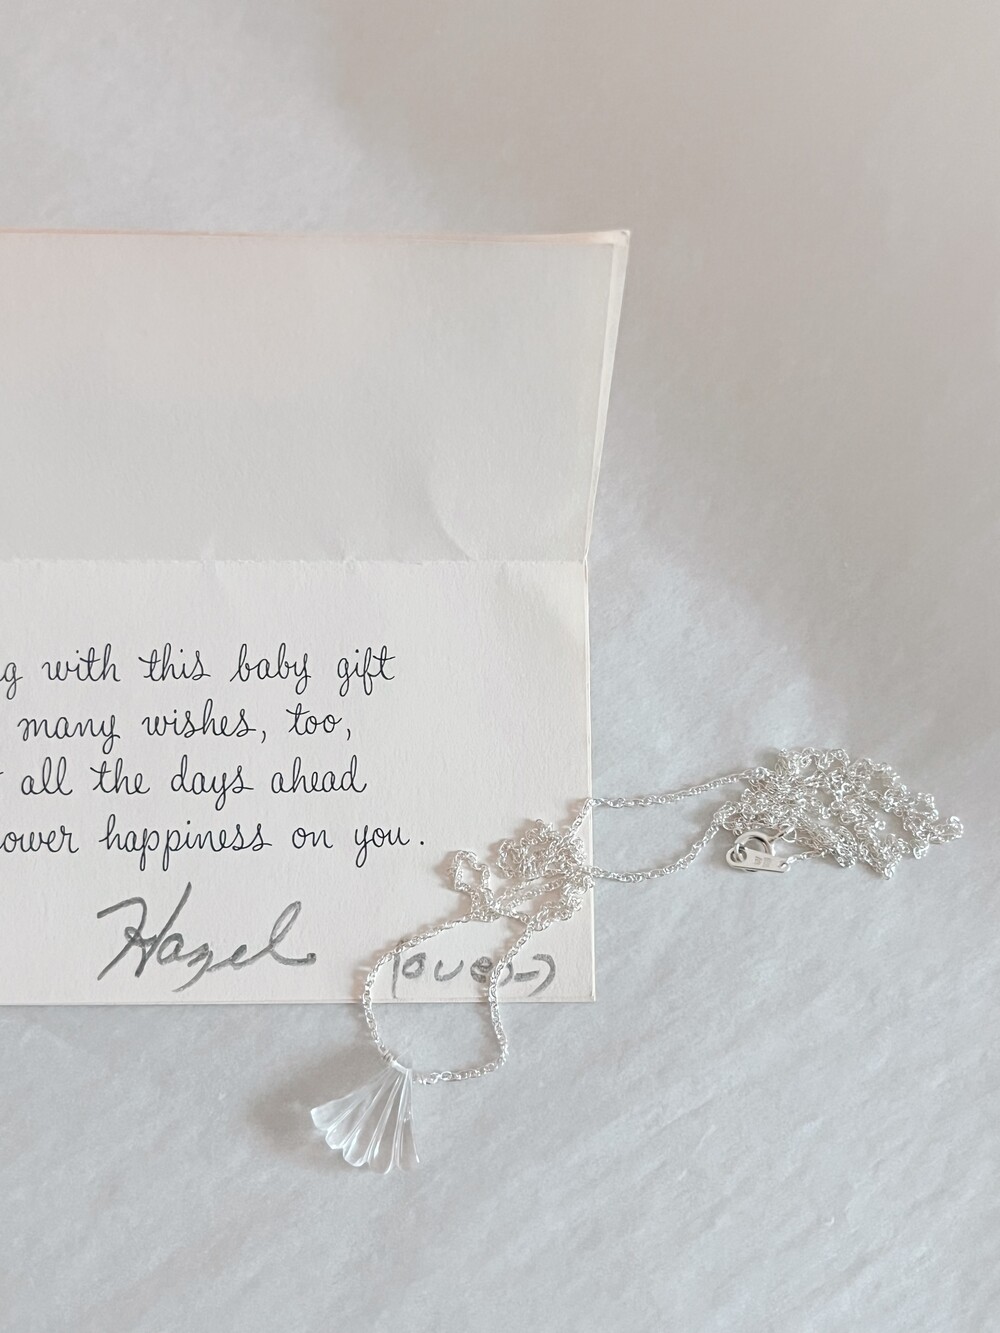 g with this baby gift
many wishes, too,
all the days ahead
ower happiness on you.
Hazel